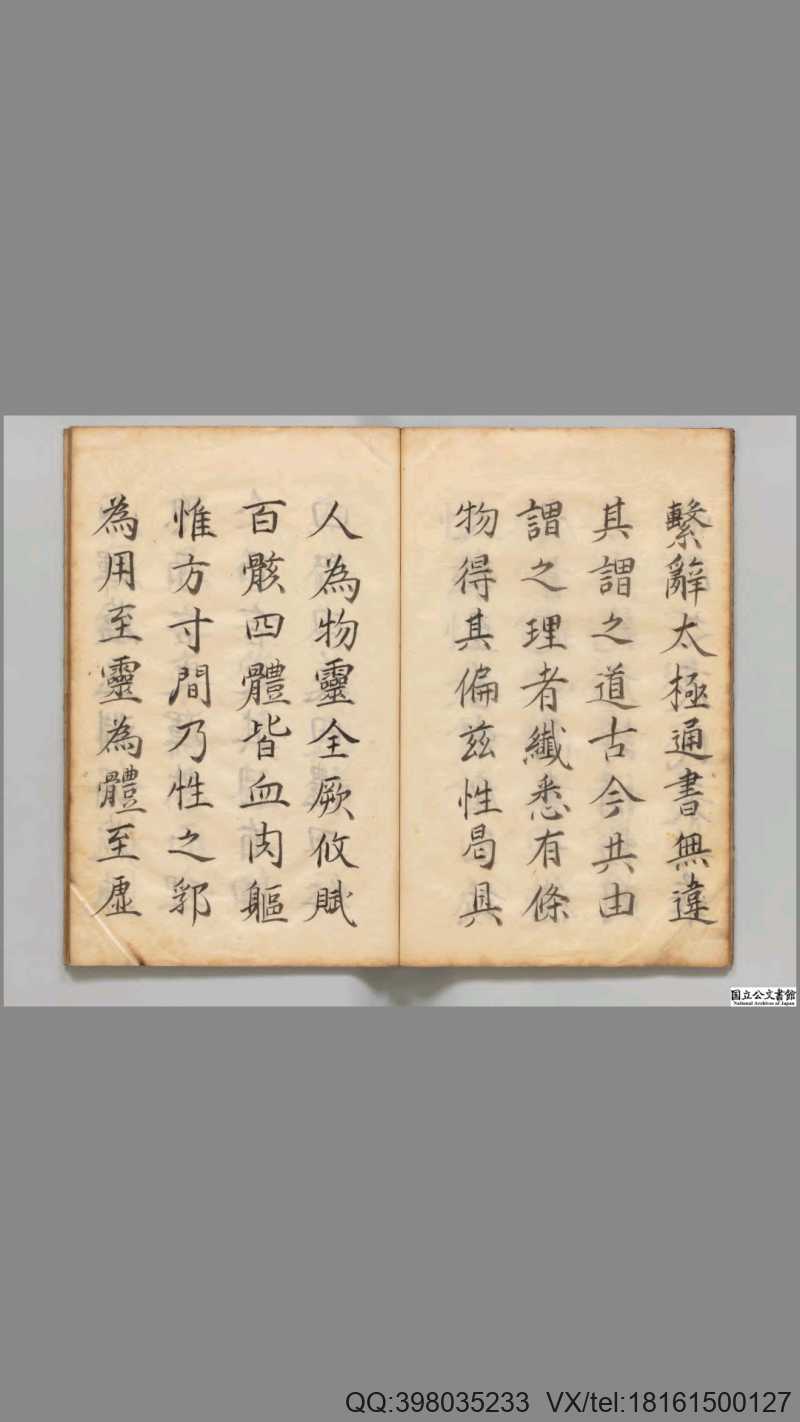 繫辭太極通書無違
其謂之道古今共由
謂之理者纖悉有條
物得其偏茲性曷具
人為物靈全厥攸賦
百骸四體皆血肉軀
惟方寸間乃性之郛
為用至靈為體至虛
国立公文書館
National Archives of Japan
QQ:398035233 VX/tel:18161500127